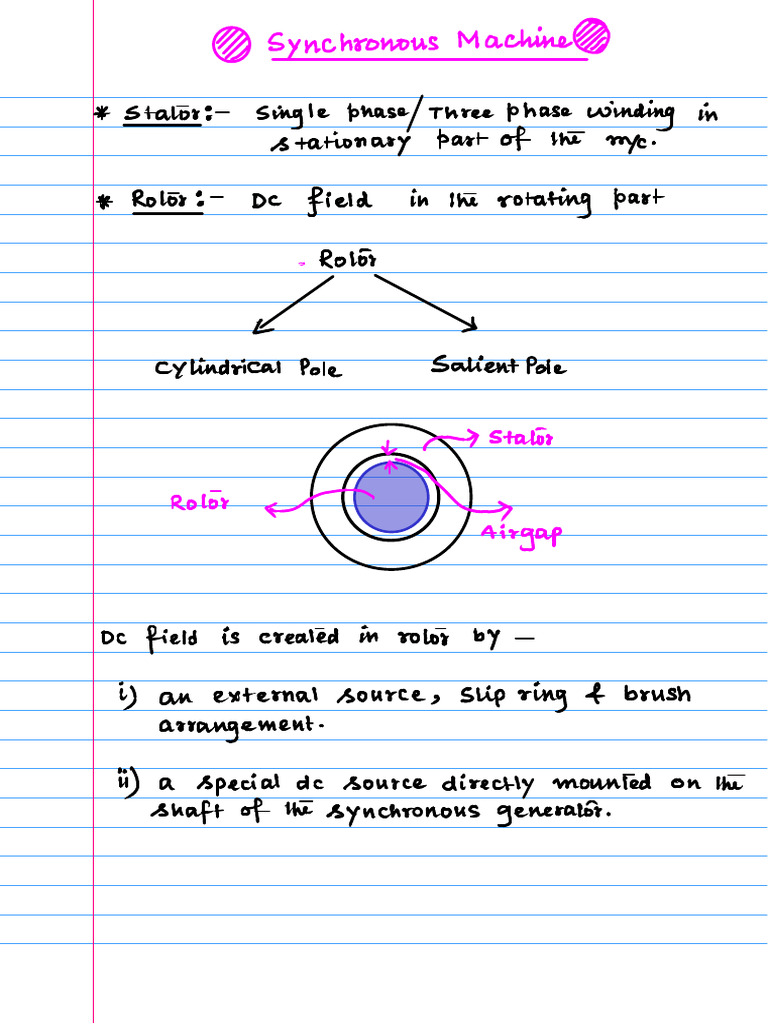 Synchronous Machine
* Stator:- Single phase/Three phase winding in
stationary part of the m/c.
* Rotor:- DC field in the rotating part
Rotor
Cylindrical Pole Salient Pole
Stator
Rotor
Airgap
DC field is created in rotor by –
i) an external source, slip ring & brush
arrangement.
ii) a special dc source directly mounted on the
shaft of the synchronous generator.